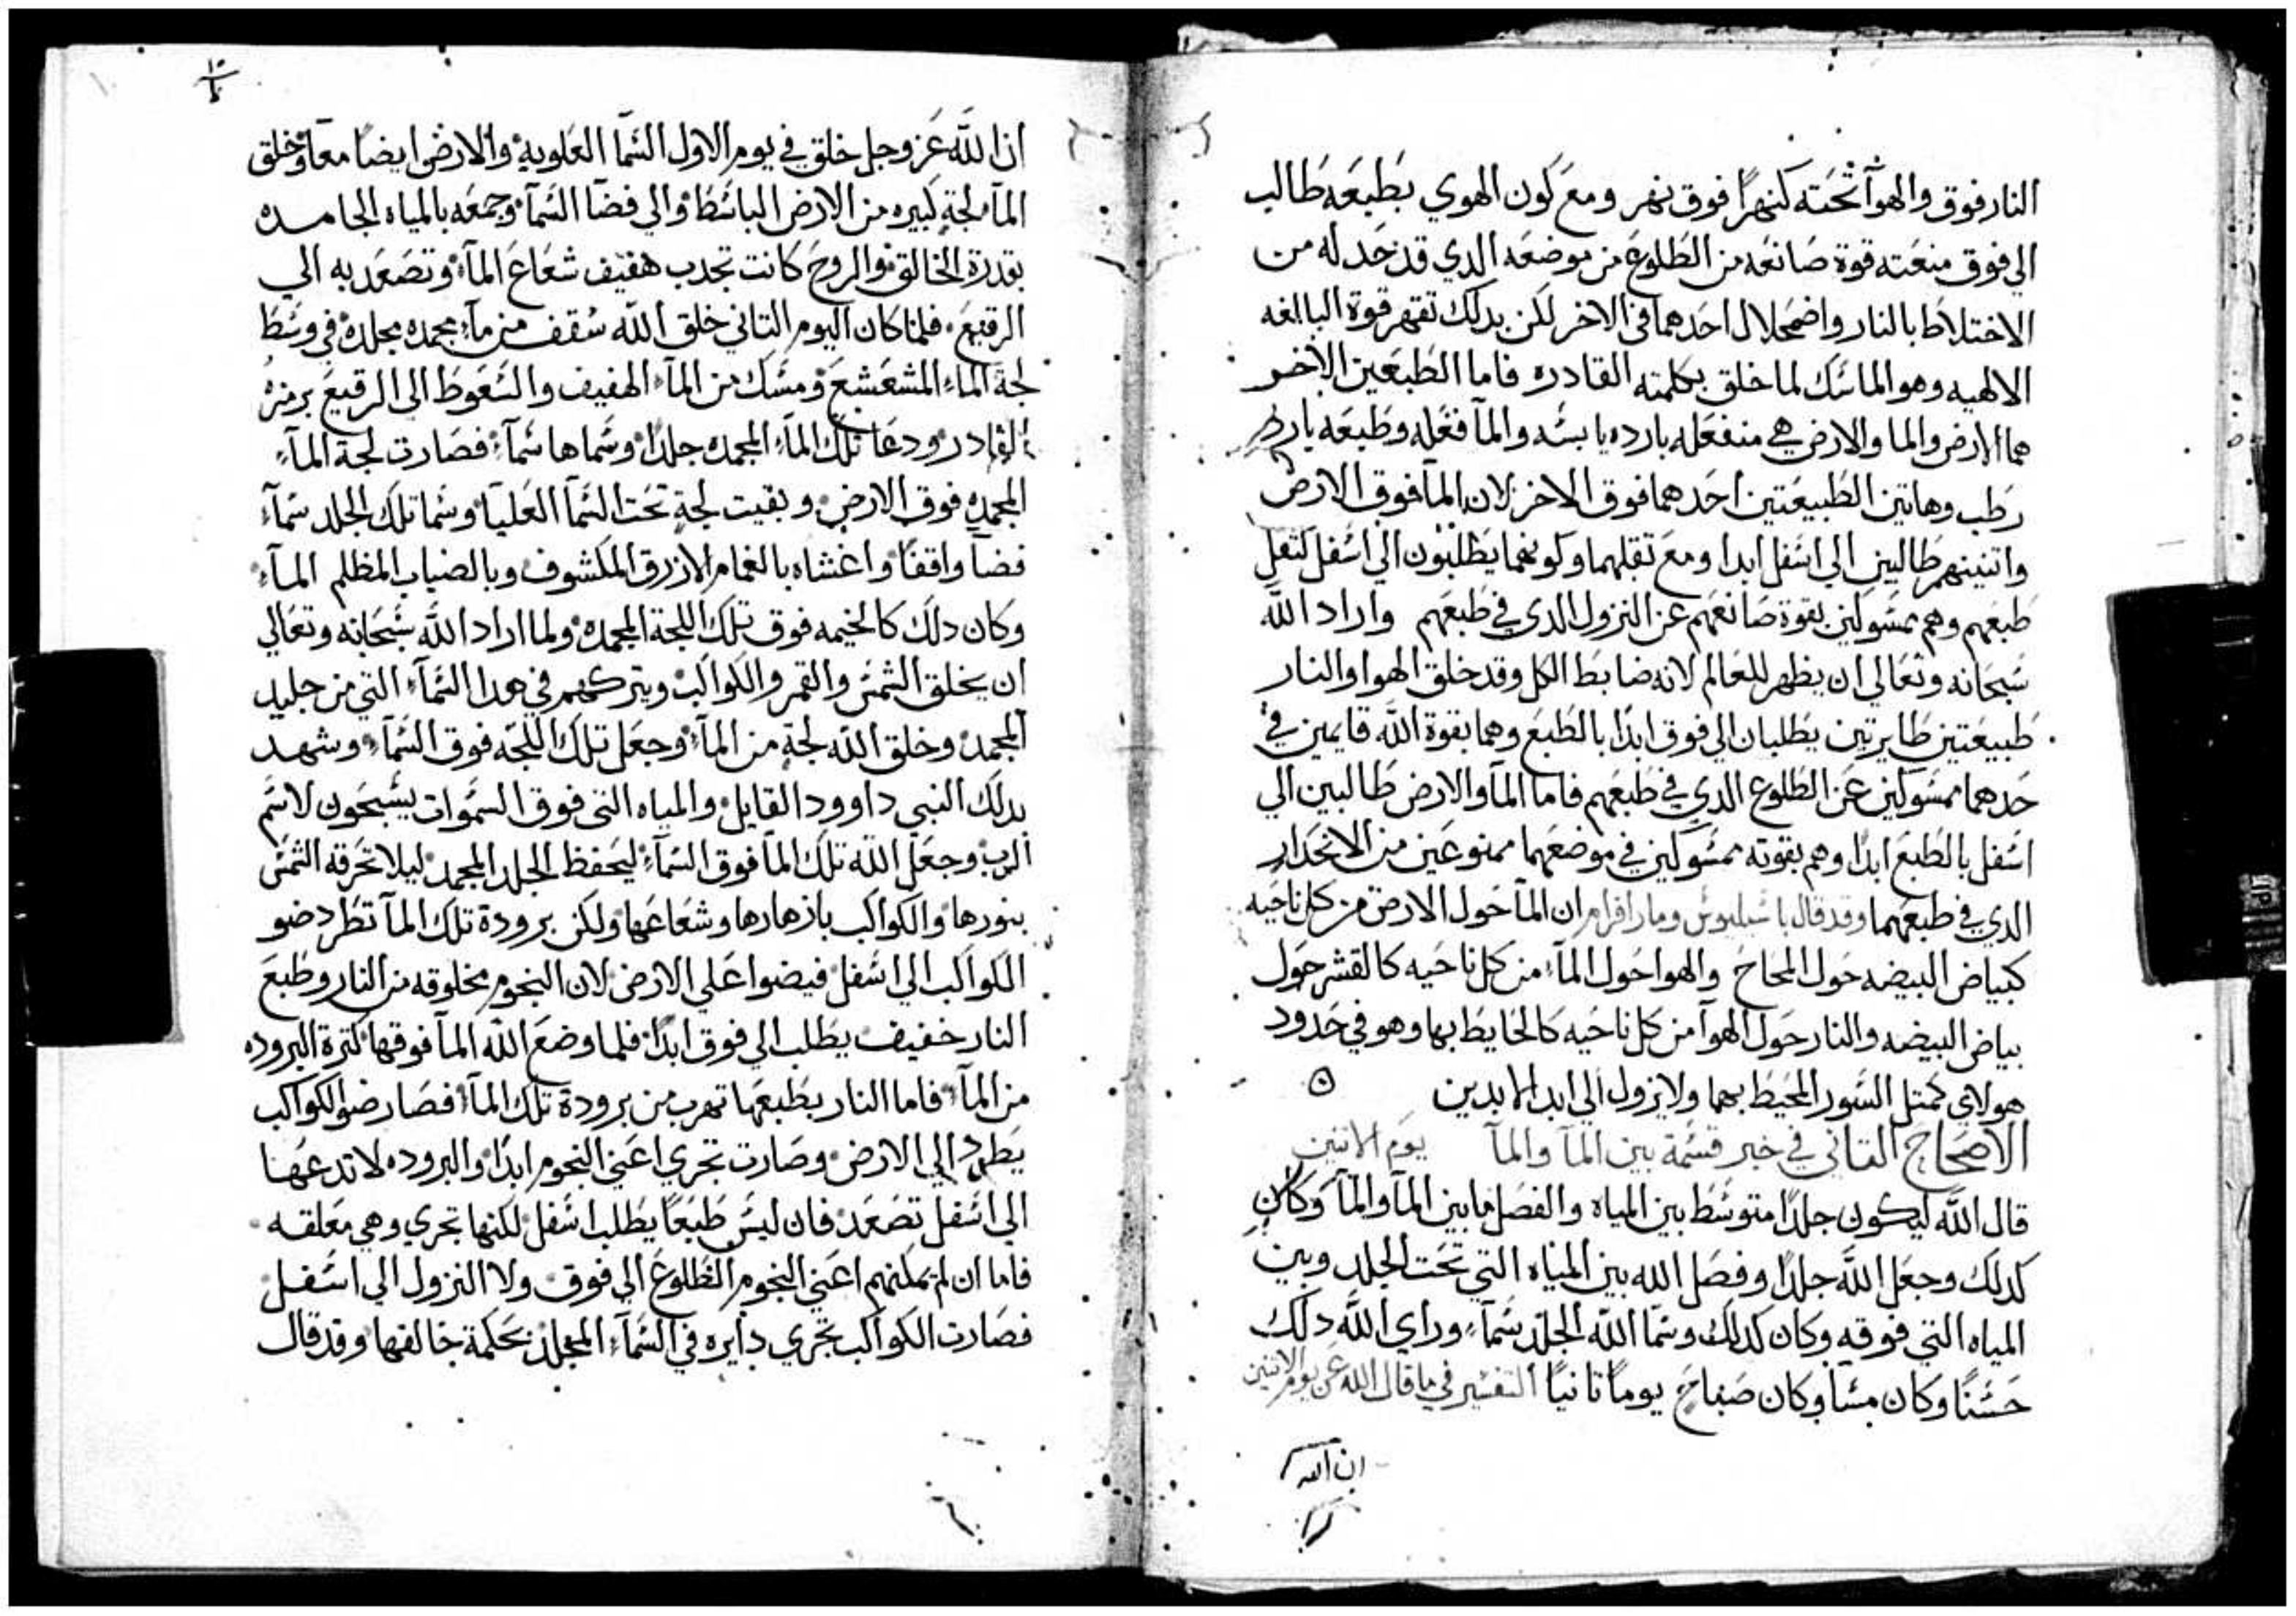 النار فوق والهوآ تحته كنهرًا فوق نهر ومع كون الهوي بطبعه طالب
الي فوق منعته قوة صانعه من الطلوع من موضعه الدي قد حد له من
الاختلاط بالنار واضمحلال احدهما في الاخر لكن بدلك تقهر قوة البالغه
الالهيه وهو الماسك لما خلق بكلمته القادره فاما الطبعين الاخر
هما الارض والما والارض هي منفعله بارده يابسه والمآ فعله وطبعه بارد
رطب وهاتين الطبيعتين احدهما فوق الاخر لان المآ فوق الارض
واتنينهم طالبين الي اسفل ابدا ومع تقلهما وكونهما يطلبون الي اسفل كتقل
طبعهم وهم ممسوكين بقوة صانعهم عن النزول الدي في طبعهم واراد الله
سبحانه وتعالي ان يظهر للعالم لانه ضابط الكل وقد خلق الهوا والنار
طبيعتين طايرتين يطلبان الي فوق ابدًا بالطبع وهما بقوة الله قايمين في
حدهما ممسوكين عن الطلوع الدي في طبعهم فاما المآ والارض طالبين الي
اسفل بالطبع ابدًا وهم بقوته ممسوكين في موضعهما ممنوعين من الانحدار
الدي في طبعهما وقد قال باسيليوس ومار افرام ان المآ حول الارض من كل ناحيه
كبياض البيضه حول المحاح والهوا حول المآء من كل ناحيه كالقشر حول
بياض البيضه والنار حول الهوآ من كل ناحيه كالحايط بها وهو في حدود
هولاي كمتل السور المحيط بهما ولا يزول الي ابد الابدين
الاصحاح التاني في خبر قسمة بين المآ والمآ يوم الاتنين
قال الله ليكون جلدًا متوسط بين المياه والفصل ما بين المآ والمآ وكان
كدلك وجعل الله جلدًا وفصل الله بين المياه التي تحت الجلد وبين
المياه التي فوقه وكان كدلك وسما الله الجلد سمآء وراي الله دلك
حسنًا وكان مسآ وكان صباح يومًا تانيًا التفسير في ما قال الله عن يوم الاتنين
ان الله
ان الله عز وجل خلق في يوم الاول السمآ العلويه والارض ايضًا معًا وخلق
المآ لجة كبيره من الارض الباسط والي فضآ السمآ وجمعه بالمياه الجامده
بقدرة الخالق والروح كانت تجدب هفيف شعاع المآء وتصعد به الي
الرقيع فلما كان اليوم التاني خلق الله سقف من مآء مجمده مجلده في وسط
لجة المآء المشعشع ومسك من المآء الهفيف والسعوط الي الرقيع برمزه
القادر ودعا تلك المآء المجمده جلدًا وسماها سمآء فصارت لجة المآء
المجمده فوق الارض وبقيت لجة تحت السمآ العليا وسما تلك الجلد سمآء
فضآ واقفًا واغشاه بالغمام الازرق المكشوف وبالضباب المظلم المآء
وكان دلك كالخيمه فوق تلك اللجة المجمده ولما اراد الله سبحانه وتعالي
ان يخلق الشمس والقمر والكواكب ويتركهم في هدا السمآء التي من جليد
المجمد وخلق الله لجة من المآء وجعل تلك اللجه فوق السمآء وشهد
بدلك النبي داوود القايل والمياه التي فوق السموات يسبحون لاسم
الرب وجعل الله تلك المآ فوق السمآء ليحفظ الجلد المجمد ليلا تحرقه الشمس
بنورها والكواكب بازهارها وشعاعها ولكن برودة تلك المآ تطرد ضو
الكواكب الي اسفل فيضوا علي الارض لان النجوم مخلوقه من النار وطبع
النار خفيف يطلب الي فوق ابدًا فلما وضع الله المآ فوقها كترة البروده
من المآء فاما النار بطبعها تهرب من برودة تلك المآء فصار ضو الكواكب
يطرد الي الارض وصارت تجري اعني النجوم ابدًا والبروده لا تدعها
الي اسفل تصعد فان ليس طبعًا يطلب اسفل لكنها تجري وهي معلقه
فاما ان لم يمكنهم اعني النجوم الطلوع الي فوق ولا النزول الي اسفل
فصارت الكواكب تجري دايره في السمآء المجلد بحكمة خالقها وقد قال